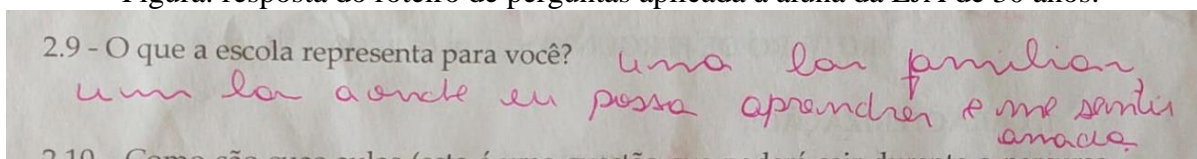 Figura: resposta do roteiro de perguntas aplicada a aluna da EJA de 50 anos.
2.9 - O que a escola representa para você? uma lar familiar,
um lar aonde eu possa aprendrer e me sentir
amada.
2.10 - Como são suas aulas (esta é uma questão que poderá sair durante o percurso